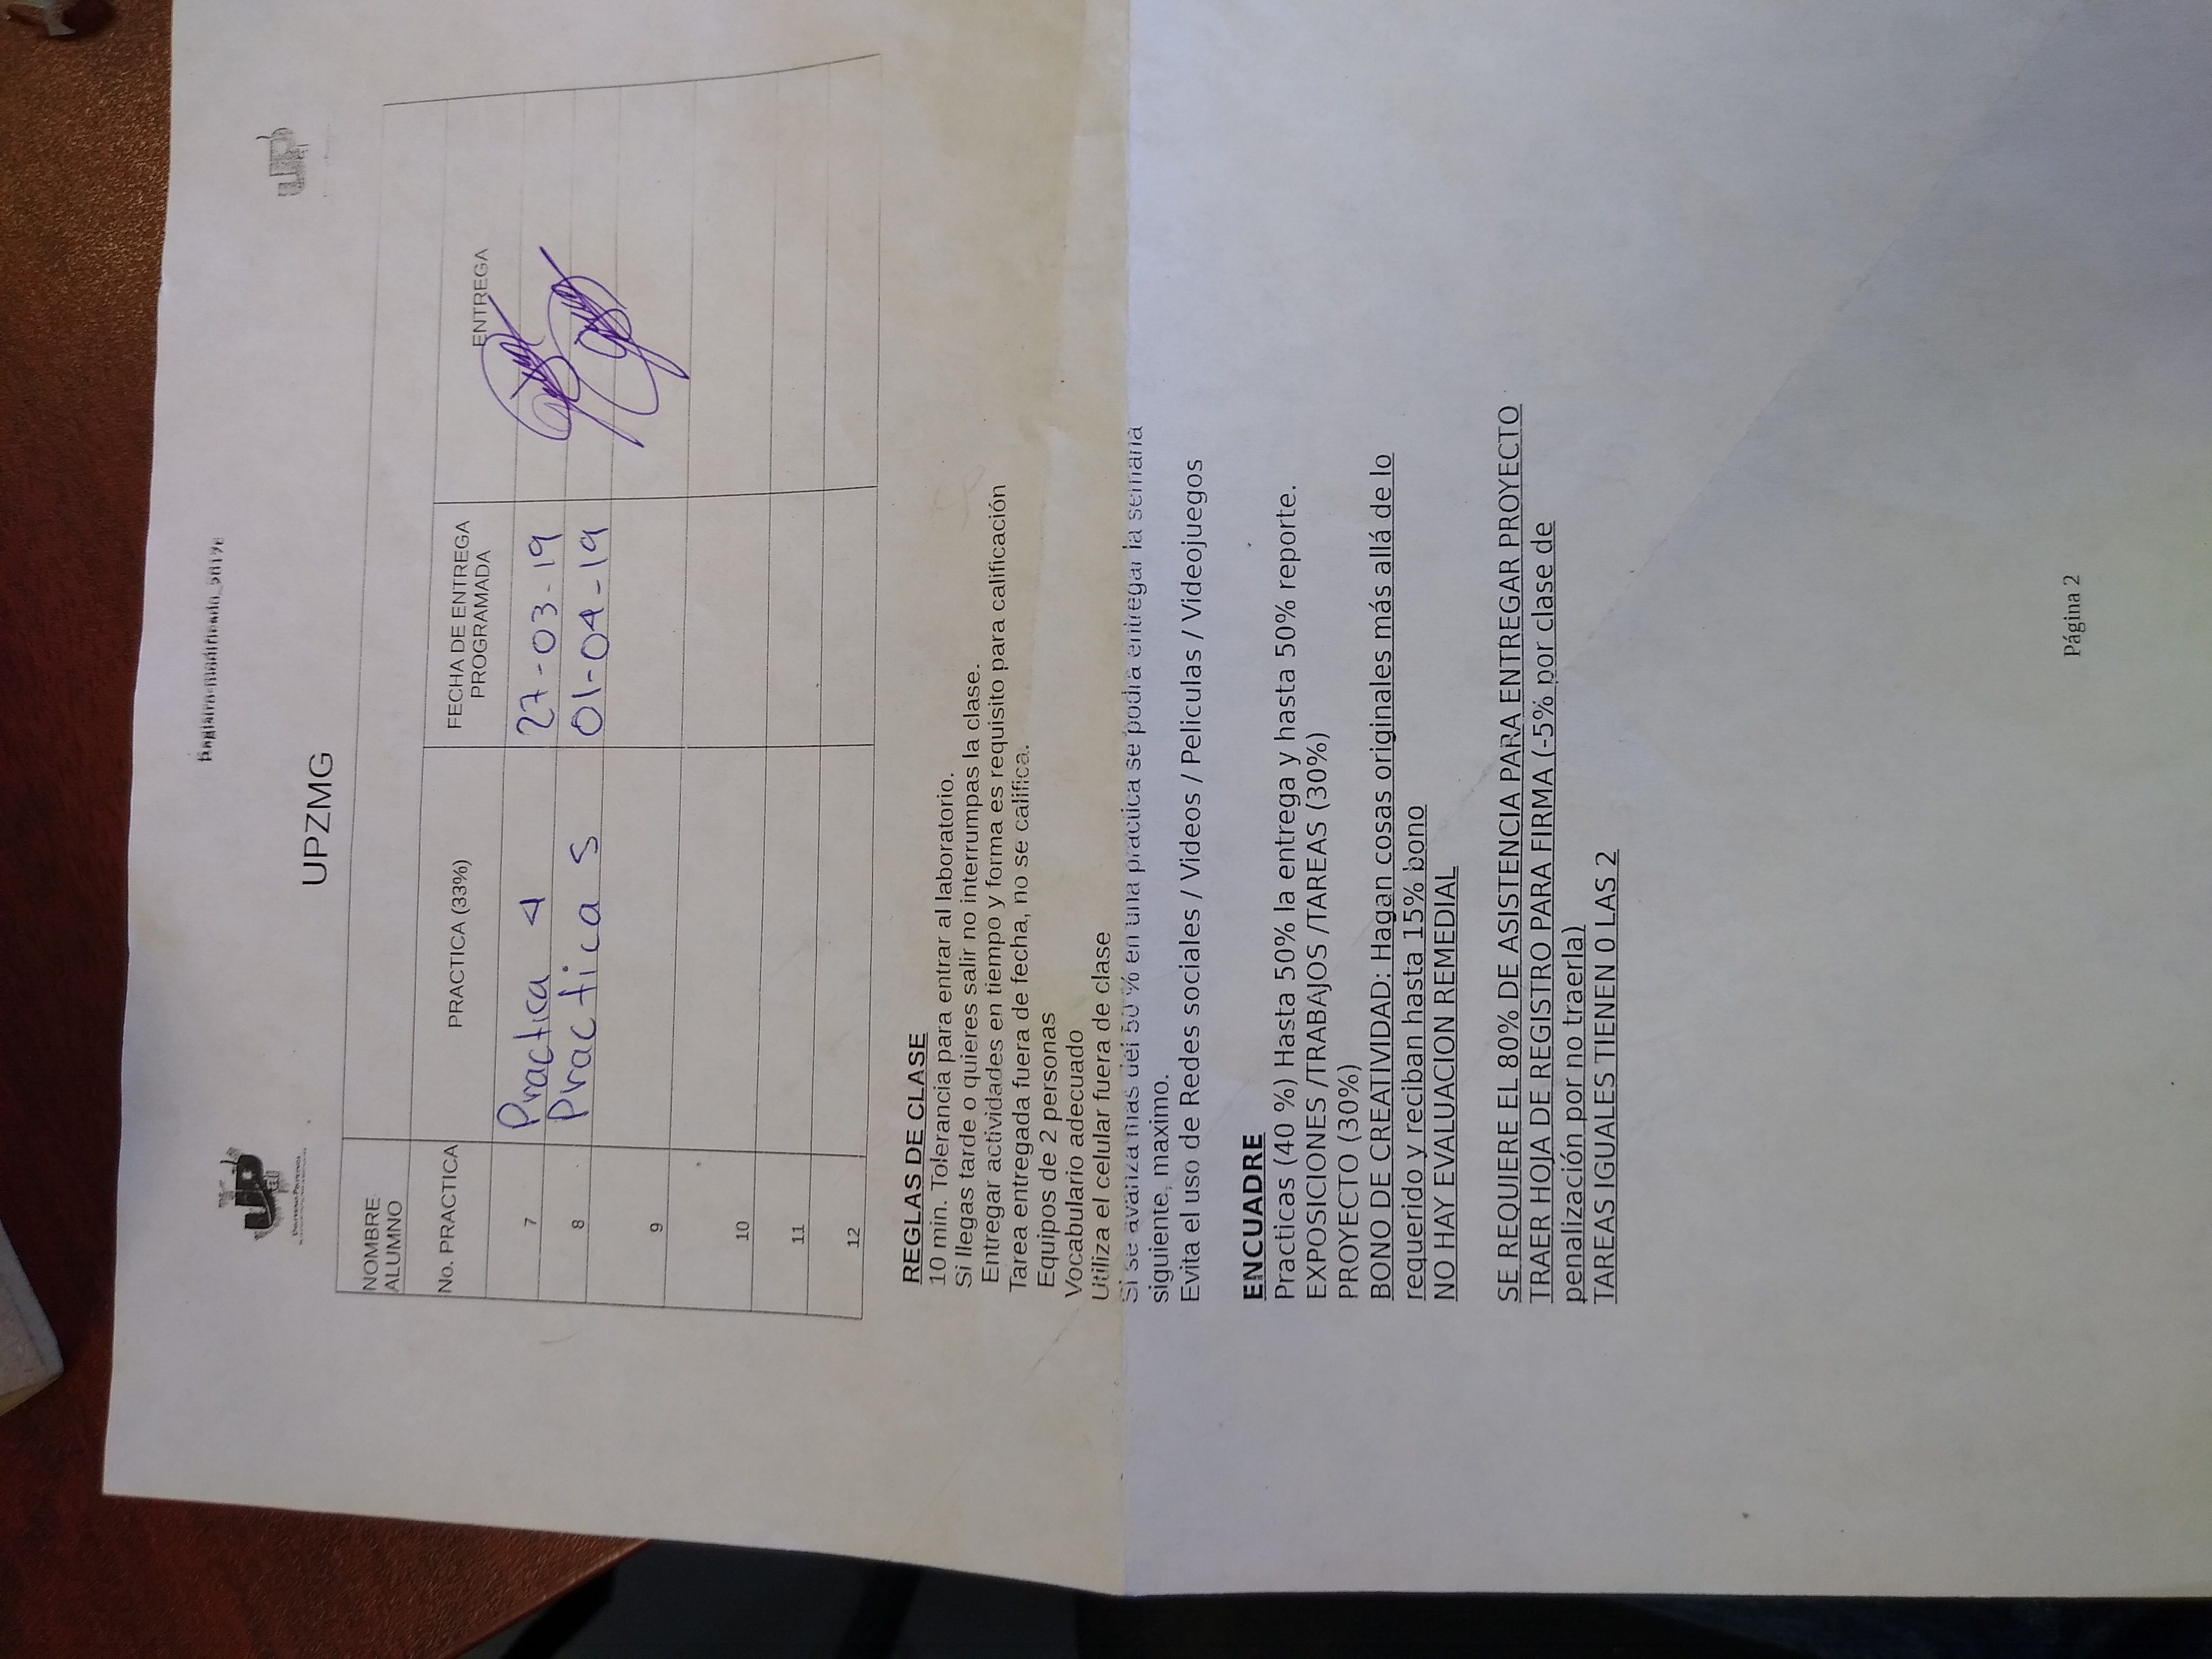 UPZMG
NOMBRE ALUMNO
No. PRACTICA PRACTICA (33%) FECHA DE ENTREGA PROGRAMADA ENTREGA
7 Practica 4 27-03-19
8 Practica 5 01-04-19
9
10
11
12
REGLAS DE CLASE
10 min. Tolerancia para entrar al laboratorio.
Si llegas tarde o quieres salir no interrumpas la clase.
Entregar actividades en tiempo y forma es requisito para calificación
Tarea entregada fuera de fecha, no se califica.
Equipos de 2 personas
Vocabulario adecuado
Utiliza el celular fuera de clase
Si se avanza mas del 50 % en una practica se podrá entregar la semana
siguiente, maximo.
Evita el uso de Redes sociales / Videos / Peliculas / Videojuegos
ENCUADRE
Practicas (40 %) Hasta 50% la entrega y hasta 50% reporte.
EXPOSICIONES /TRABAJOS /TAREAS (30%)
PROYECTO (30%)
BONO DE CREATIVIDAD: Hagan cosas originales más allá de lo
requerido y reciban hasta 15% bono
NO HAY EVALUACION REMEDIAL
SE REQUIERE EL 80% DE ASISTENCIA PARA ENTREGAR PROYECTO
TRAER HOJA DE REGISTRO PARA FIRMA (-5% por clase de
penalización por no traerla)
TAREAS IGUALES TIENEN 0 LAS 2
Página 2